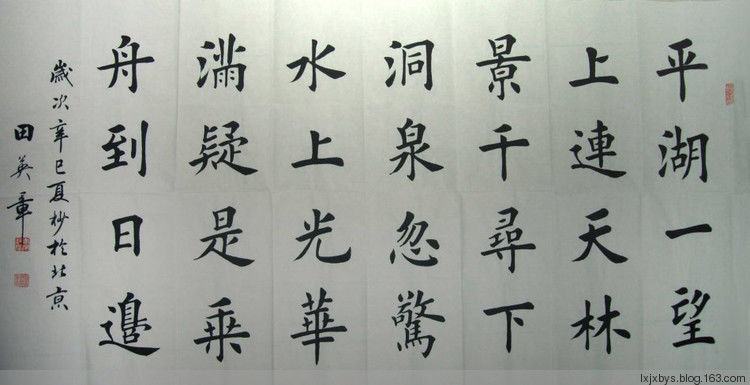 平湖一望
上連天林
景千尋下
洞泉忽驚
水上光華
滿疑是乘
舟到日邊
歲次辛巳夏杪於北京
田英章
lxjxbys.blog.163.com